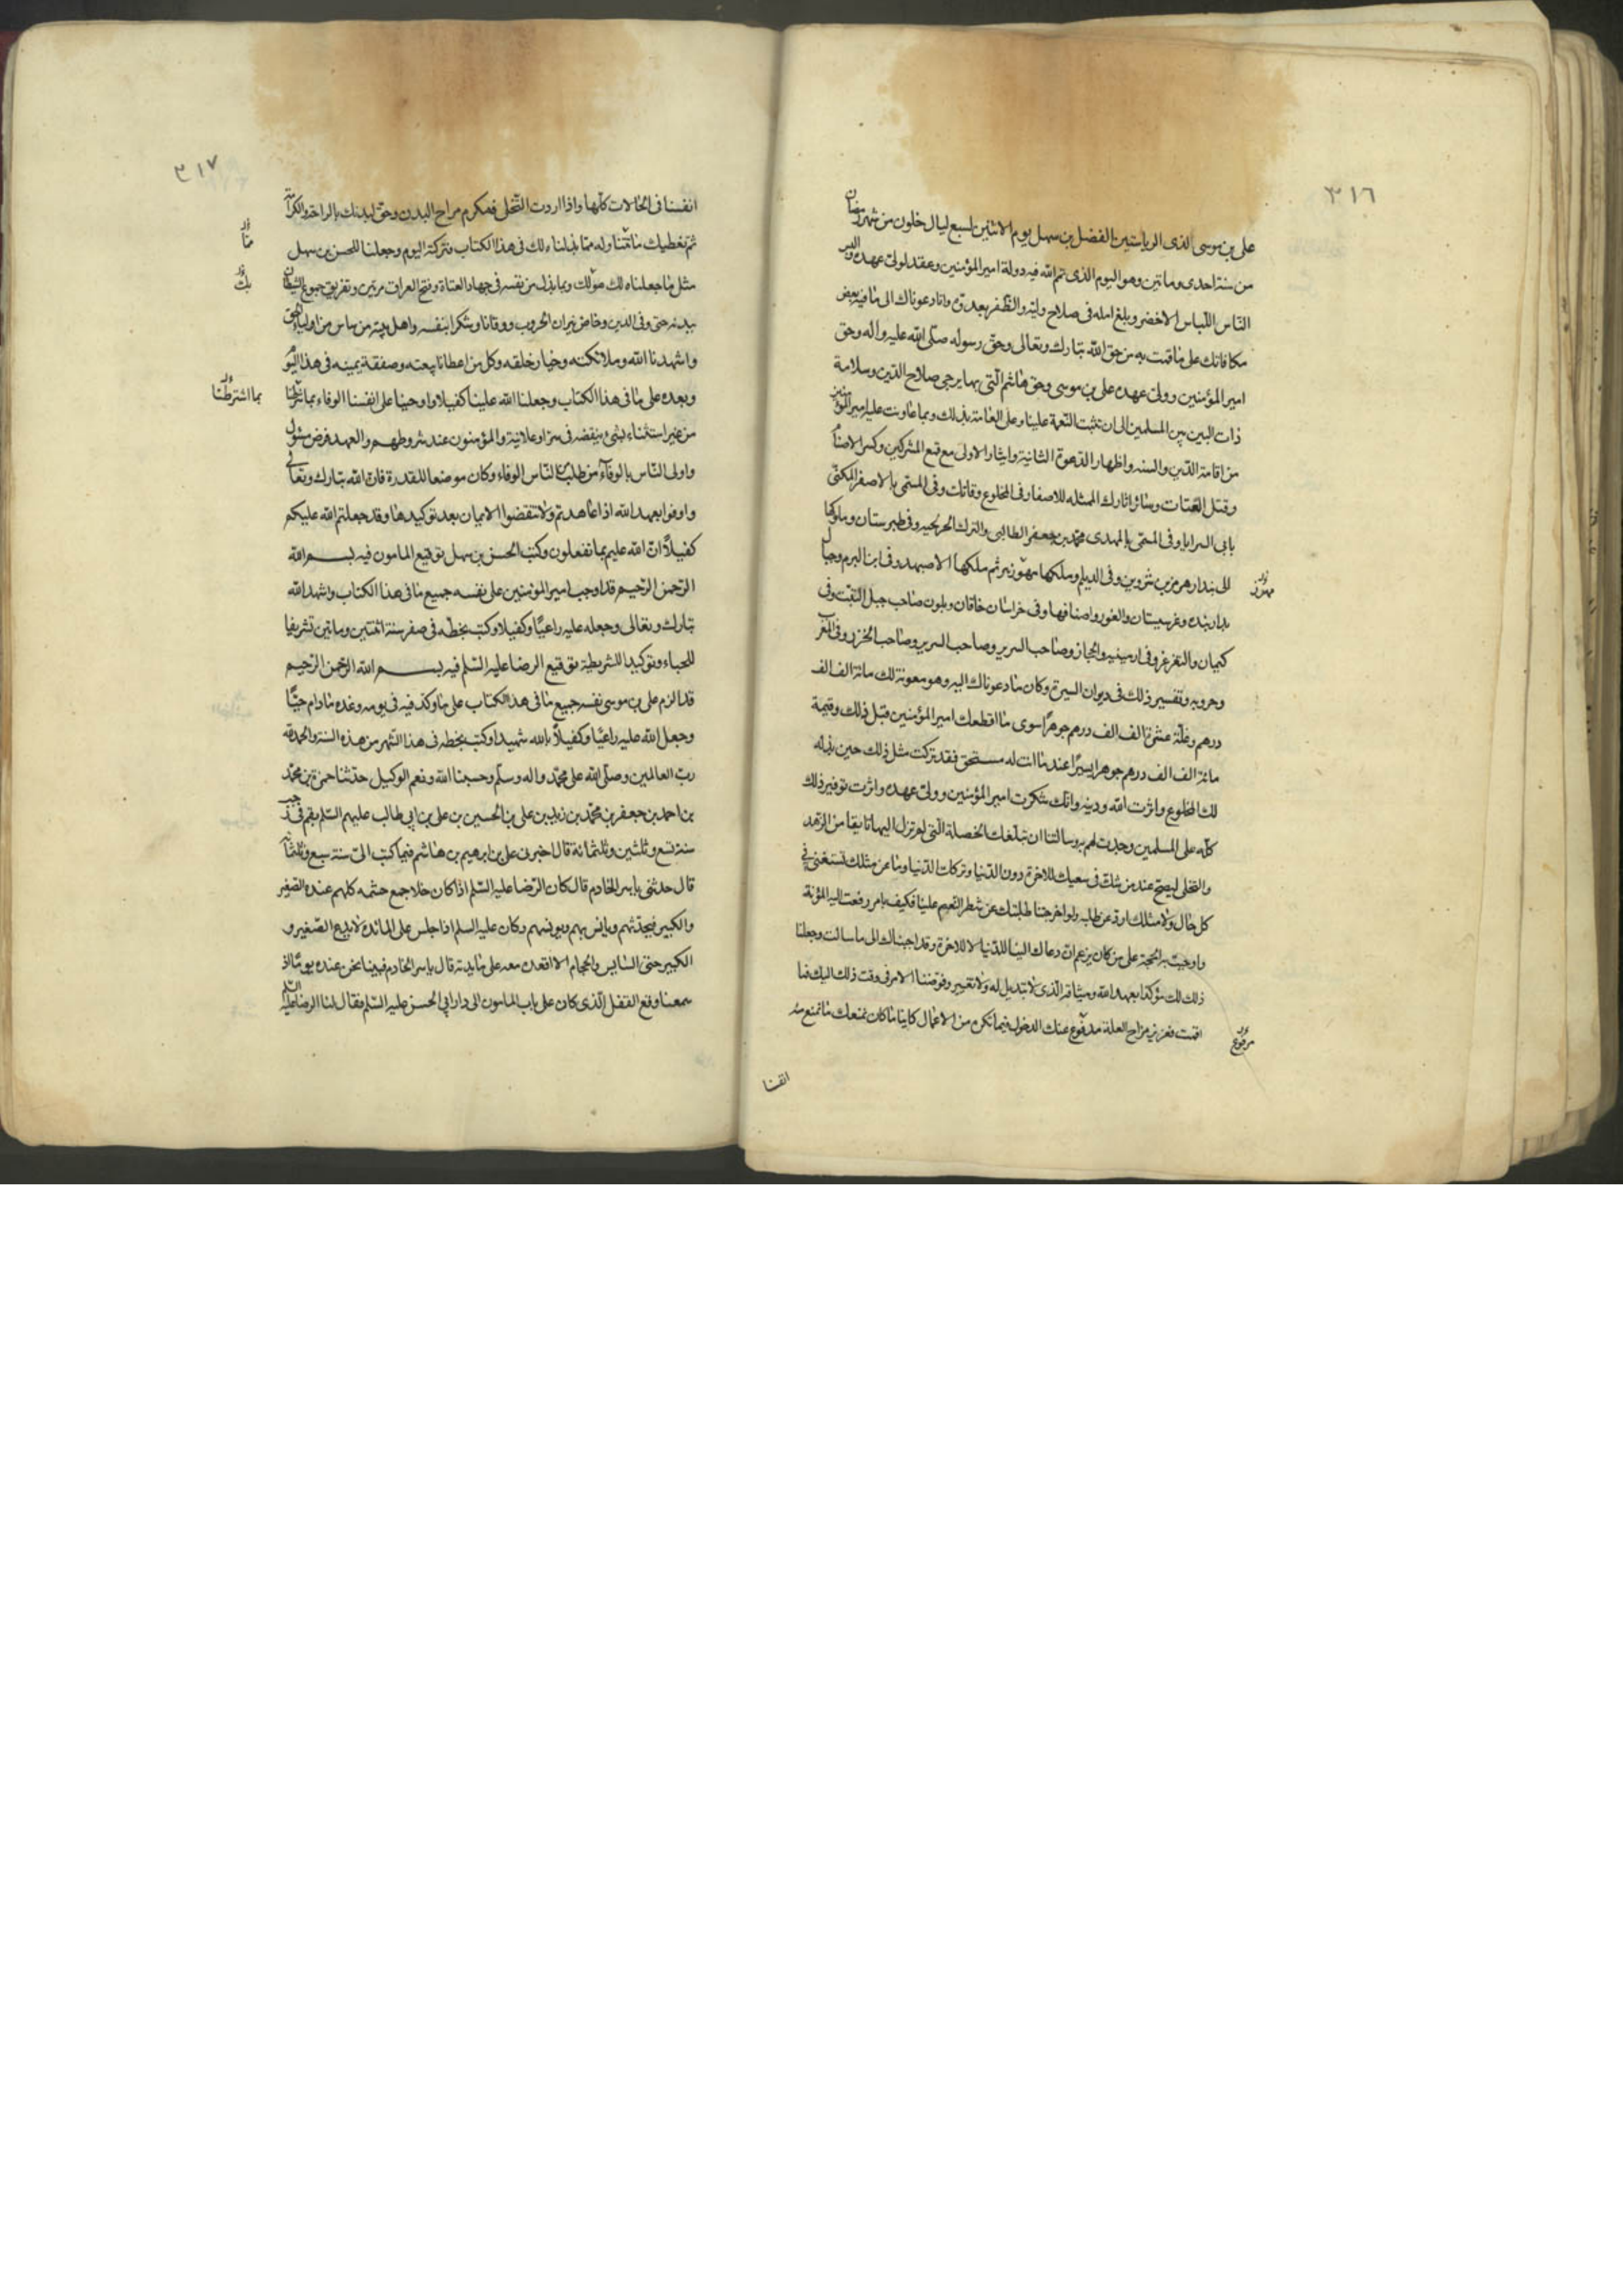 ٣١٦
على بن موسى الذى الرياستين الفضل بن سهل يوم الاثنين لسبع ليال خلون من شهر رمضان
من سنة احدى وماتين وهو اليوم الذى تم الله فيه دولة امير المؤمنين وعقد لولى عهده والبس
الناس اللباس الاخضر وبلغ امله فى صلاح وليه والظفر بعدوه وانا دعوناك الى ما فيه بعض
مكافاتك على ما قمت به من حق الله تبارك وتعالى وحق رسوله صلى الله عليه واله وحق
امير المؤمنين وولى عهده على بن موسى وحق هاشم التى بها يرجى صلاح الدين وسلامة
ذات البين بين المسلمين الى ان تثبت النعمة علينا وعلى العامة بذلك وبما عاونت عليه امير المؤمنين
من اقامة الدين والسنة واظهار الدعوة الثانية وايثار الاولى مع قمع المشركين وكسر الاصنام
وقتل العتات وسائر اثارك الممثله للامصار فى المخلوع وقابل وفى المسمى بالاصفر المكنى
بابى السرايا وفى المسمى بالمهدى محمد بن جعفر الطالبى والترك الخزلجيه وفى طبرستان وملوكها
الى بندار هرمز بن شروين وفى الديلم وملكها مهوزير ثم ملكها الاصبهبد وفى ابن البرم وجبال
مهوز
بدار بنده وغرشستان والغور واصنافها وفى خراسان خاقان وبلون صاحب جبل التبت وفى
كيمان والتغزغز وفى ارمينيه والحجاز وصاحب السرير وصاحب السرير وصاحب الخزر وفى المغرب
وحروبه وتفسير ذلك فى ديوان السيرة وكان ما دعوناك اليه وهو معونة لك مائة الف الف
درهم وغلة عشرة الف الف درهم جوهرا سوى ما اقطعك امير المؤمنين قبل ذلك وقيمة
مائة الف الف درهم جوهرا يسيرا عند ما انت له مستحق فقد تركت مثل ذلك حين بذله
لك المخلوع واثرت الله ودينه وانك شكرت امير المؤمنين وولى عهده واثرت توفير ذلك
كله على المسلمين وجدت لهم به وسالتنا ان نبلغك الخصلة التى لم تزل اليها تايقا من الزهد
والتخلى ليصح عند من شك فى سعيك للاخرة دون الدنيا وتركك الدنيا وما عن مثلك تستغنى فى
كل حال ولا مثلك رد عن طلبه ولو اخرجتنا طلبتك عن شطر النعيم علينا فكيف بامر رفعت اليه المؤنة
واوجبت به الحجة على من كان يزعم ان دعاك الينا للدنيا لا للاخرة وقد اجبناك الى ما سالت وجعلنا
ذلك لك مؤكدا بعهد الله وميثاقه الذى لا تبديل له ولا تغيير وفوضنا الامر فى وقت ذلك اليك فما
اقمت فعزيز مزاح العلة مدفوع عنك الدخول فيما تكره من الاعمال كاينا ما كان نمنعك ما نمنع منه
مرفوع
انفسنا
٣١٧
انفسنا فى الحالات كلها واذا اردت التخلى فمكرم مراح البدن وحق لبدنك بالراحة والكرامة
ثم نعطيك ما تتناوله مما بذلناه لك فى هذا الكتاب فتركته اليوم وجعلنا للحسن بن سهل
منا
مثل ما جعلناه لك مولك وبما بذل من نفسه فى جهاد العتاة وفتح العراق مرتين وتفريق جموع الشيطان
بك
بيديه حتى قوى الدين وخاض نيران الحروب ووقانا وشكرا بنفسه واهل بيته من ساس من اولياء الحق
واشهدنا الله وملائكته وخيار خلقه وكل من اعطانا بيعته وصفقة يمينه فى هذا اليوم
وبعده على ما فى هذا الكتاب وجعلنا الله علينا كفيلا واوجبنا على انفسنا الوفاء بما شرطنا
بما اشترطنا
من غير استثناء بشئ ينقضه فى سر او علانية والمؤمنون عند شروطهم والعهد فرض مسئول
واولى الناس بالوفاء من طلب من الناس الوفاء وكان موضعا للقدرة قال الله تبارك وتعالى
واوفوا بعهد الله اذا عاهدتم ولا تنقضوا الايمان بعد توكيدها وقد جعلتم الله عليكم
كفيلا ان الله عليم بما تفعلون وكتب الحسن بن سهل توقيع المامون فيه بسم الله
الرحمن الرحيم قد اوجب امير المؤمنين على نفسه جميع ما فى هذا الكتاب واشهد الله
تبارك وتعالى وجعله عليه راعيا وكفيلا وكتب بخطه فى صفر سنة اثنتين وماتين تشريفا
للحباء وتوكيدا للشريطة توقيع الرضا عليه السلم فيه بسم الله الرحمن الرحيم
قد الزم على بن موسى نفسه جميع ما فى هذا الكتاب على ما وكد فيه فى يومه وغده ما دام حيا
وجعل الله عليه راعيا وكفيلا بالله شهيدا وكتب بخطه فى هذا الشهر من هذه السنة والحمد لله
رب العالمين وصلى الله على محمد واله وسلم وحسبنا الله ونعم الوكيل حدثنا حمزة بن محمد
بن احمد بن جعفر بن محمد بن زيد بن على بن الحسين بن على بن ابى طالب عليهم السلم بقم فى رجب
سنة تسع وثلثين وثلثمائة قال اخبرنى على بن ابرهيم بن هاشم فيما كتب الى سنة سبع وثلثمائة
قال حدثنى ياسر الخادم قال كان الرضا عليه السلم اذا كان خلا جمع حشمه كلهم عنده الصغير
والكبير فيحدثهم ويانس بهم ويونسهم وكان عليه السلم اذا جلس على المائدة لا يدع الصغير و
الكبير حتى السايس والحجام الا اقعده معه على مايدته قال ياسر الخادم فبينا نحن عنده يوما اذ
سمعنا وقع القفل الذى كان على باب المامون الى دار ابى الحسن عليه السلم فقال لنا الرضا عليه السلم